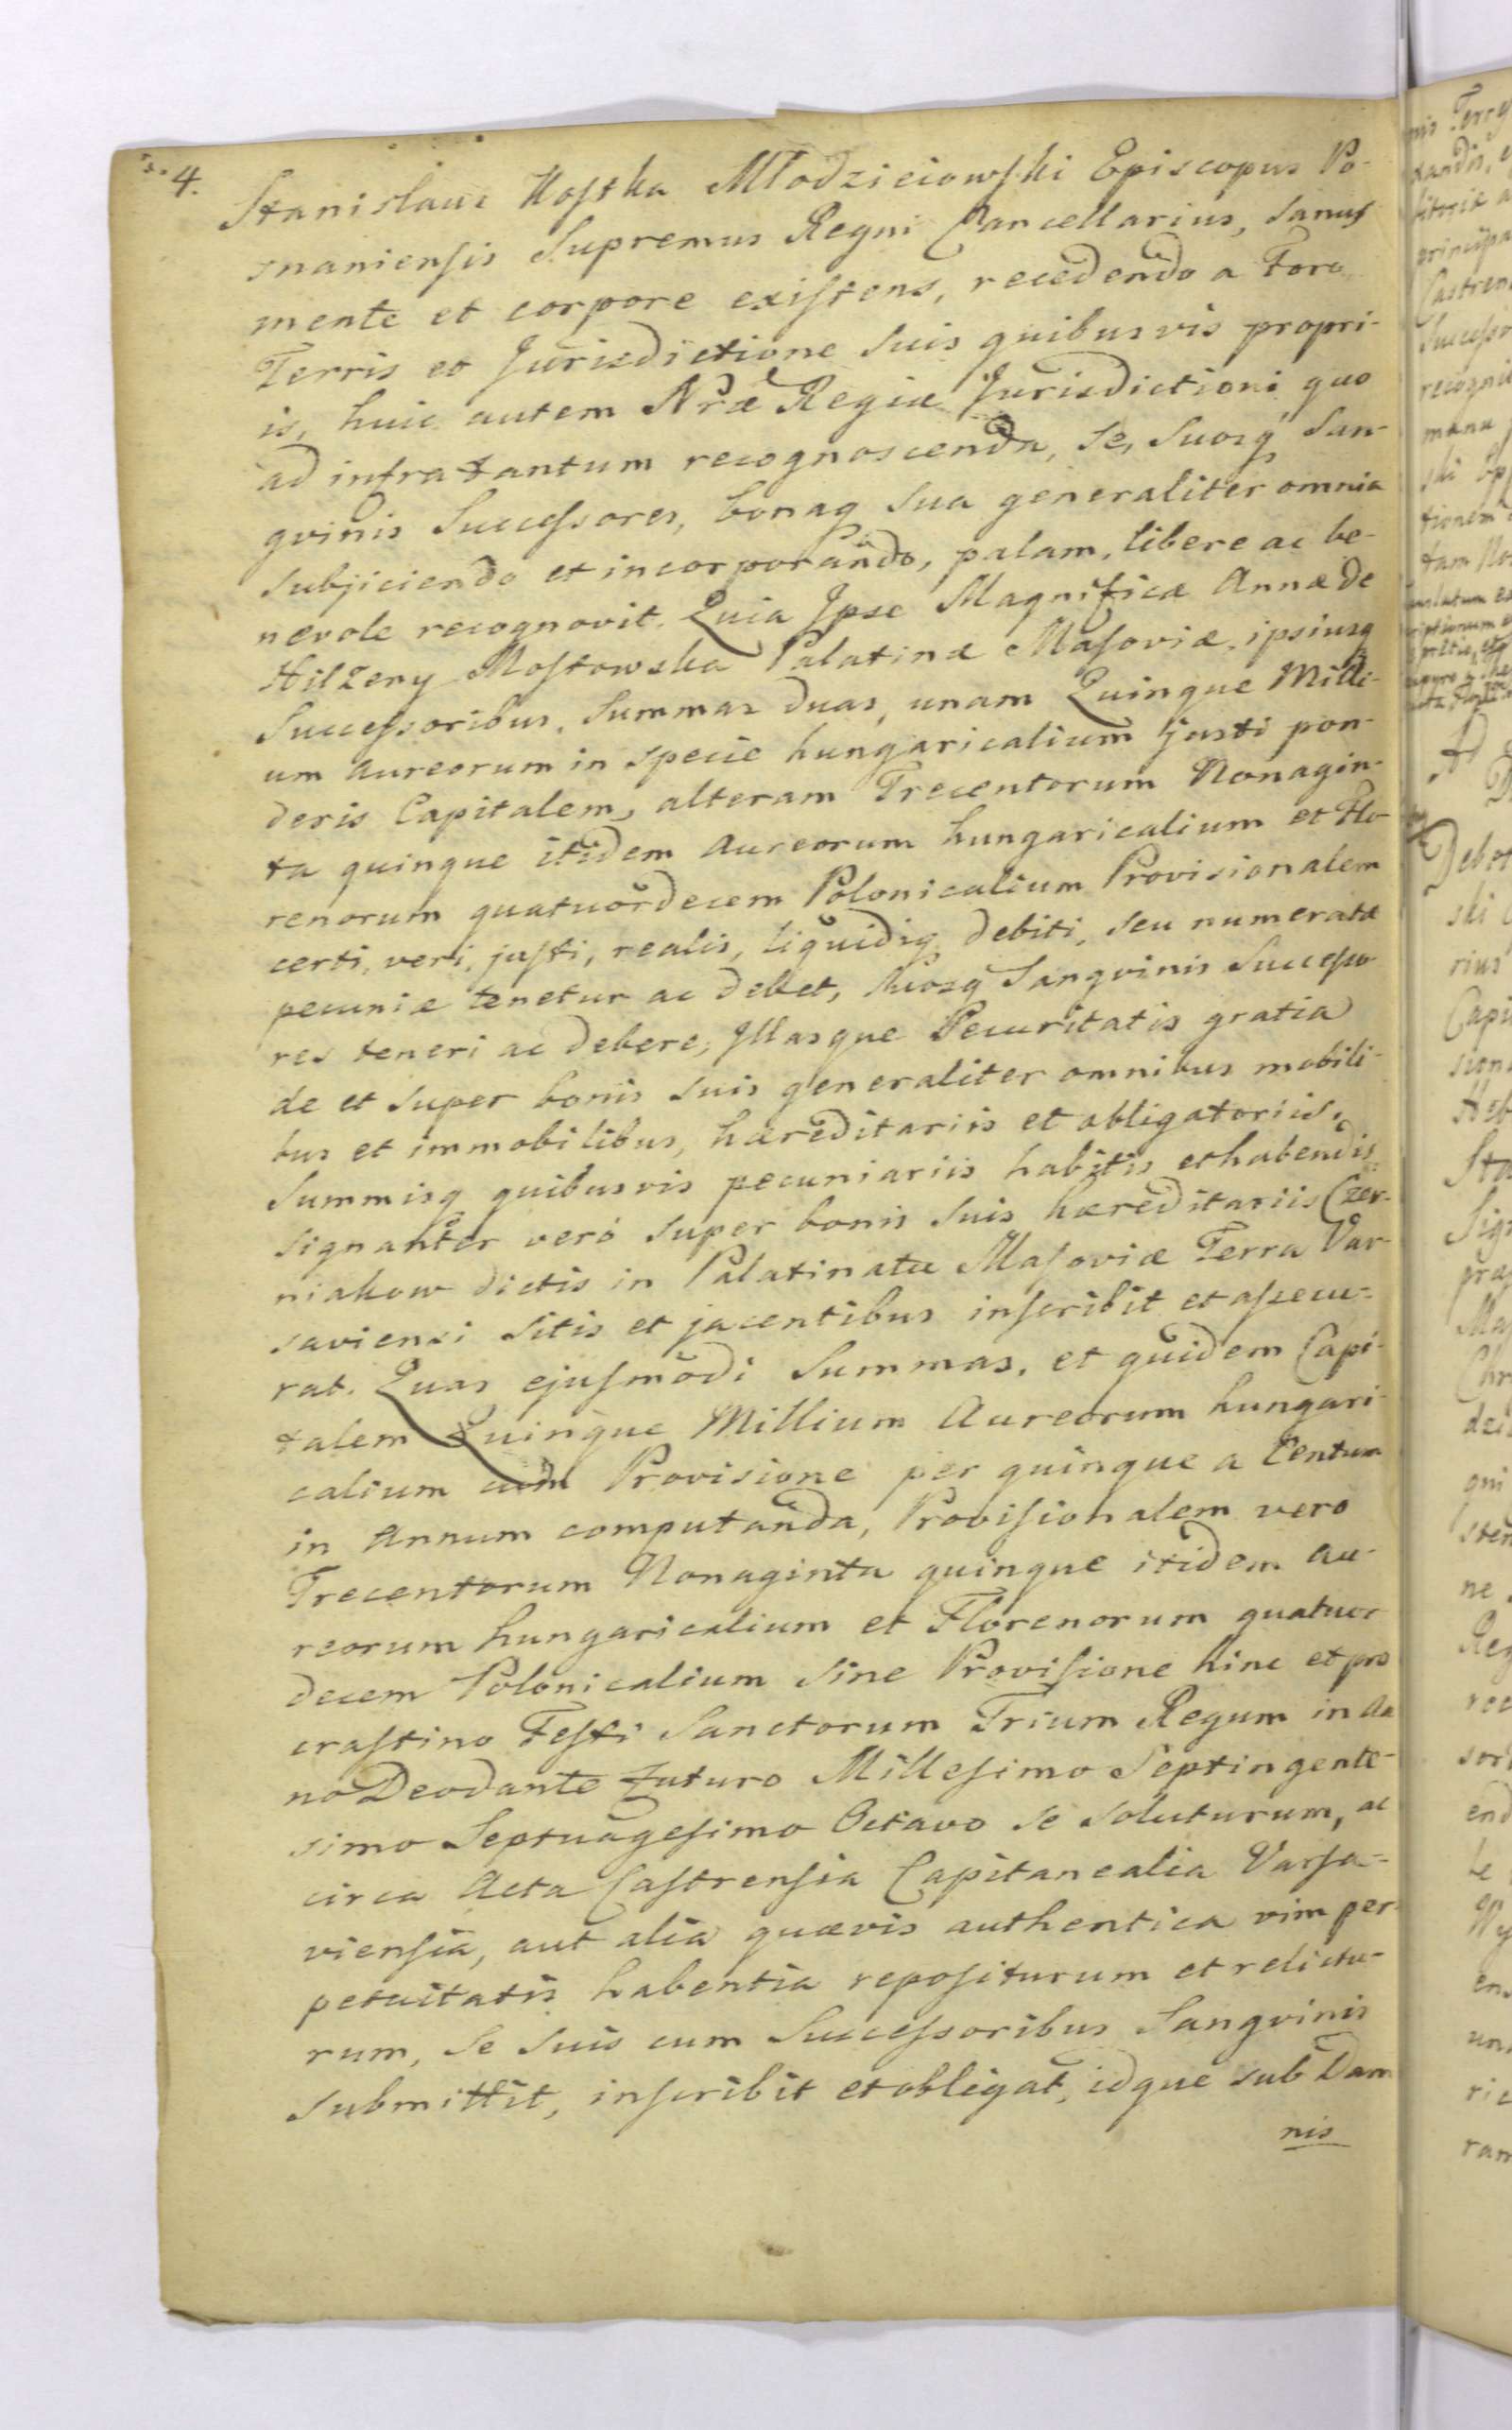 4.
Stanislaus Kostka Młodzieiowski Episcopus Po-
snaniensis Supremus Regni Cancellarius, sanus
mente et corpore existens, recedendo a Foro
Terris et Jurisdictione suis quibusvis propri-
is, huic autem Nræ Regiæ Jurisdictioni quo
ad infra tantum recognoscenda, se, suosq San-
gvinis Successores, bonaq sua generaliter omnia
subjiciendo et incorporando, palam, libere ac be-
nevole recognovit. Quia Ipse Magnificæ Annæ de
Hilzeny Mostowska Palatinæ Masoviæ, ipsiusq
Successoribus, Summas duas, unam Quinque Milli-
um aureorum in specie hungaricalium justi pon-
deris Capitalem, alteram Trecentorum Nonagin-
ta quinque itidem aureorum hungaricalium et Flo-
renorum quatuordecem Polonicalium Provisionalem
certi, veri, justi, realis, liquidiq debiti, seu numeratæ
pecuniæ tenetur ac debet, suosq Sangvinis Successo-
res teneri ac debere, Illasque Securitatis gratia
de et super bonis suis generaliter omnibus mobili-
bus et immobilibus, hæreditariis et obligatoriis,
Summisq quibusvis pecuniariis habitis et habendis,
signanter vero super bonis suis hæreditariis Czer-
niakow dictis in Palatinatu Masoviæ Terra Var-
saviensi sitis et jacentibus inscribit et assecu-
rat. Quas ejusmodi Summas, et quidem Capi-
talem Quinque Millium Aureorum hungari-
calium cum Provisione per quinque a Centum
in Annum computanda, Provisionalem vero
Trecentorum Nonaginta quinque itidem au-
reorum hungaricalium et Florenorum quatuor
decem Polonicalium sine Provisione hinc et pro
crastino Festi Sanctorum Trium Regum in An
no Deodante futuro Millesimo Septingente-
simo Septuagesimo Octavo se soluturum, ac
circa Acta Castrensia Capitanealia Varsa-
viensia, aut alia quævis authentica vim per-
petuitatis habentia repositurum et relictu-
rum, se suis cum Successoribus Sangvinis
submittit, inscribit et obligat, idque sub Dam
nis